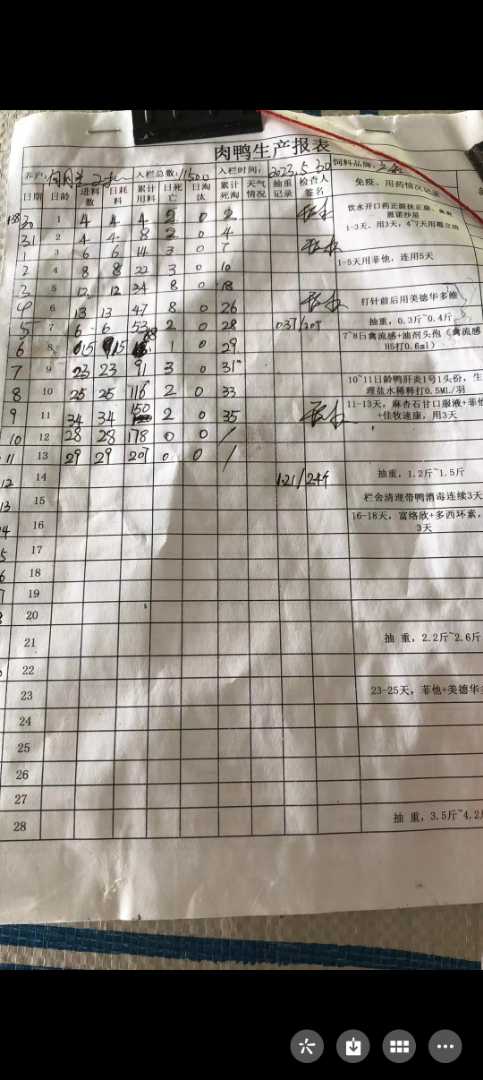 肉鸭生产报表
养户: 入栏总数: 11500 入栏时间: 2023.5.30 饲料品牌:
日期 日龄 进料数 日耗料 累计用料 日死亡 日淘汰 累计死淘 天气情况 抽重记录 检查人签名 免疫、用药情况记录
30 1 4 4 4 2 0 2 饮水开口药正源扶正康、
1-3天、用3天,
31 2 4 4 8 2 0 4
1 3 6 6 14 3 0 7
2 4 8 8 22 3 0 10 1-5天用菲他,连用5天
3 5 12 12 34 8 0 18
4 6 13 13 47 8 0 26 打针前后用美德华多维
5 7 6 6 53 2 0 28 抽重,0.3斤~0.4斤
6 8 15 15 68 1 0 29 7~8日禽流感+油剂头孢(禽流感H5打0.6ml)
7 9 23 23 91 3 0 31
8 10 25 25 116 2 0 33 10~11日龄鸭肝炎1号1头份,生理盐水稀释打0.5ML/羽
9 11 34 34 150 2 0 35 11-13天,麻杏石甘口服液+菲他+佳牧速康,用3天
10 12 28 28 178 0 0 /
11 13 29 29 207 0 0 /
12 14 121/244 抽重,1.2斤~1.5斤
13 15 栏舍清理带鸭消毒连续3天
4 16 16-18天,富络欣+多西环素,3天
5 17
6 18
7 19
20
21 抽 重,2.2斤~2.6斤
22
23 23-25天,菲他+美德华
24
25
26
27
28 抽 重,3.5斤~4.2斤